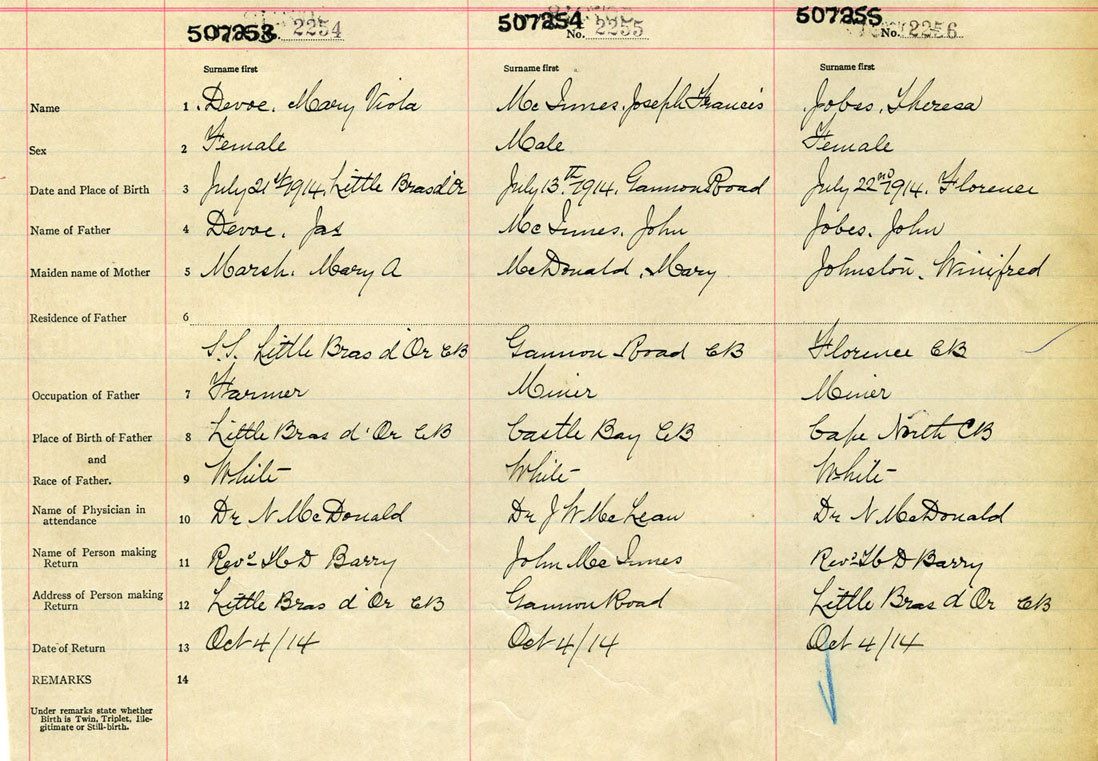 507253 2254 507254 No. 2255 507255 No. 2256
Surname first Surname first Surname first
Name 1 Devoe, Mary Viola Mc Innes, Joseph Francis Jobes, Theresa
Sex 2 Female Male Female
Date and Place of Birth 3 July 21st 1914, Little Bras d'Or July 13th 1914, Gannon Road July 22nd 1914, Florence
Name of Father 4 Devoe, Jas Mc Innes, John Jobes, John
Maiden name of Mother 5 Marsh, Mary A McDonald, Mary Johnston, Winifred
Residence of Father 6
S.S. Little Bras d'Or CB Gannon Road CB Florence CB
Occupation of Father 7 Farmer Miner Miner
Place of Birth of Father 8 Little Bras d'Or CB Castle Bay CB Cape North CB
and
Race of Father. 9 White White White
Name of Physician in
attendance 10 Dr N McDonald Dr J W McLean Dr N McDonald
Name of Person making
Return 11 Revd H D Barry John Mc Innes Revd H D Barry
Address of Person making
Return 12 Little Bras d'Or CB Gannon Road Little Bras d'Or CB
Date of Return 13 Oct 4/14 Oct 4/14 Oct 4/14
REMARKS 14
Under remarks state whether
Birth is Twin, Triplet, Ille-
gitimate or Still-birth.